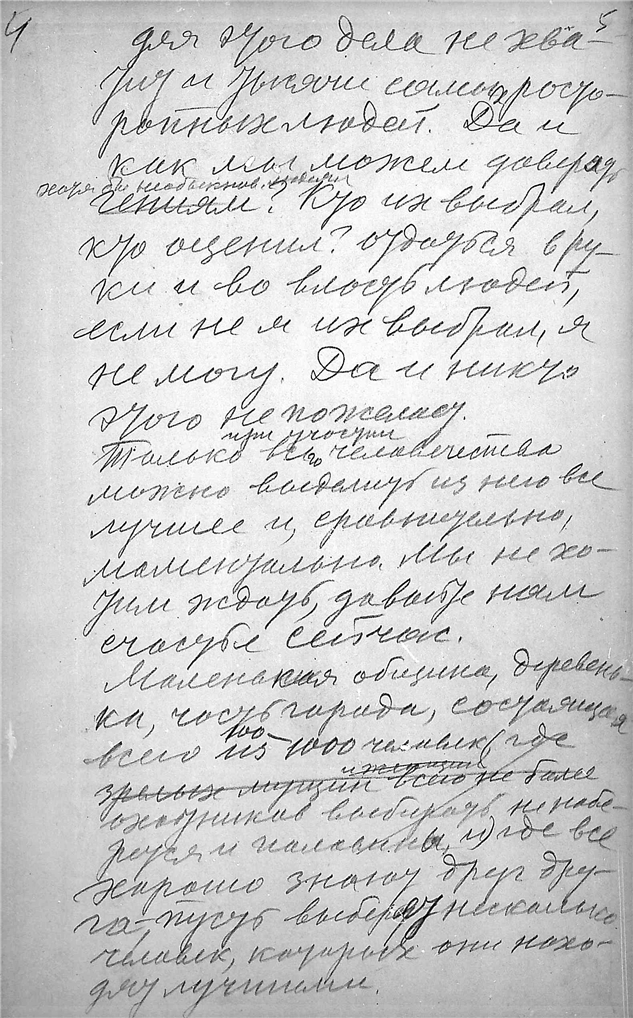 4
5
для этого дела не хва-
тит и тысячи самых расто-
ропных людей. Да и
как мы можем доверять
хотя бы необыкнов. людям
гениям? Кто их выбрал,
кто оценил? Отдаться в ру-
ки и во власть людей,
если не я их выбрал, я
не могу. Да и никто
этого не пожелает.
при участии
Только всего человечества
можно выделить из него все
лучшее и, сравнительно,
моментально. Мы не хо-
тим ждать, давайте нам
счастье сейчас.
Маленькая община, деревень-
ка, часть города, состоящая
100
всего из 1000 человек (где
и женщин
зрелых мущин всего не более
охотников выбирать не набе-
рется и половины, и) где все
хорошо знают друг дру-
га, пусть выберет несколько
человек, которых они нахо-
дят лучшими.